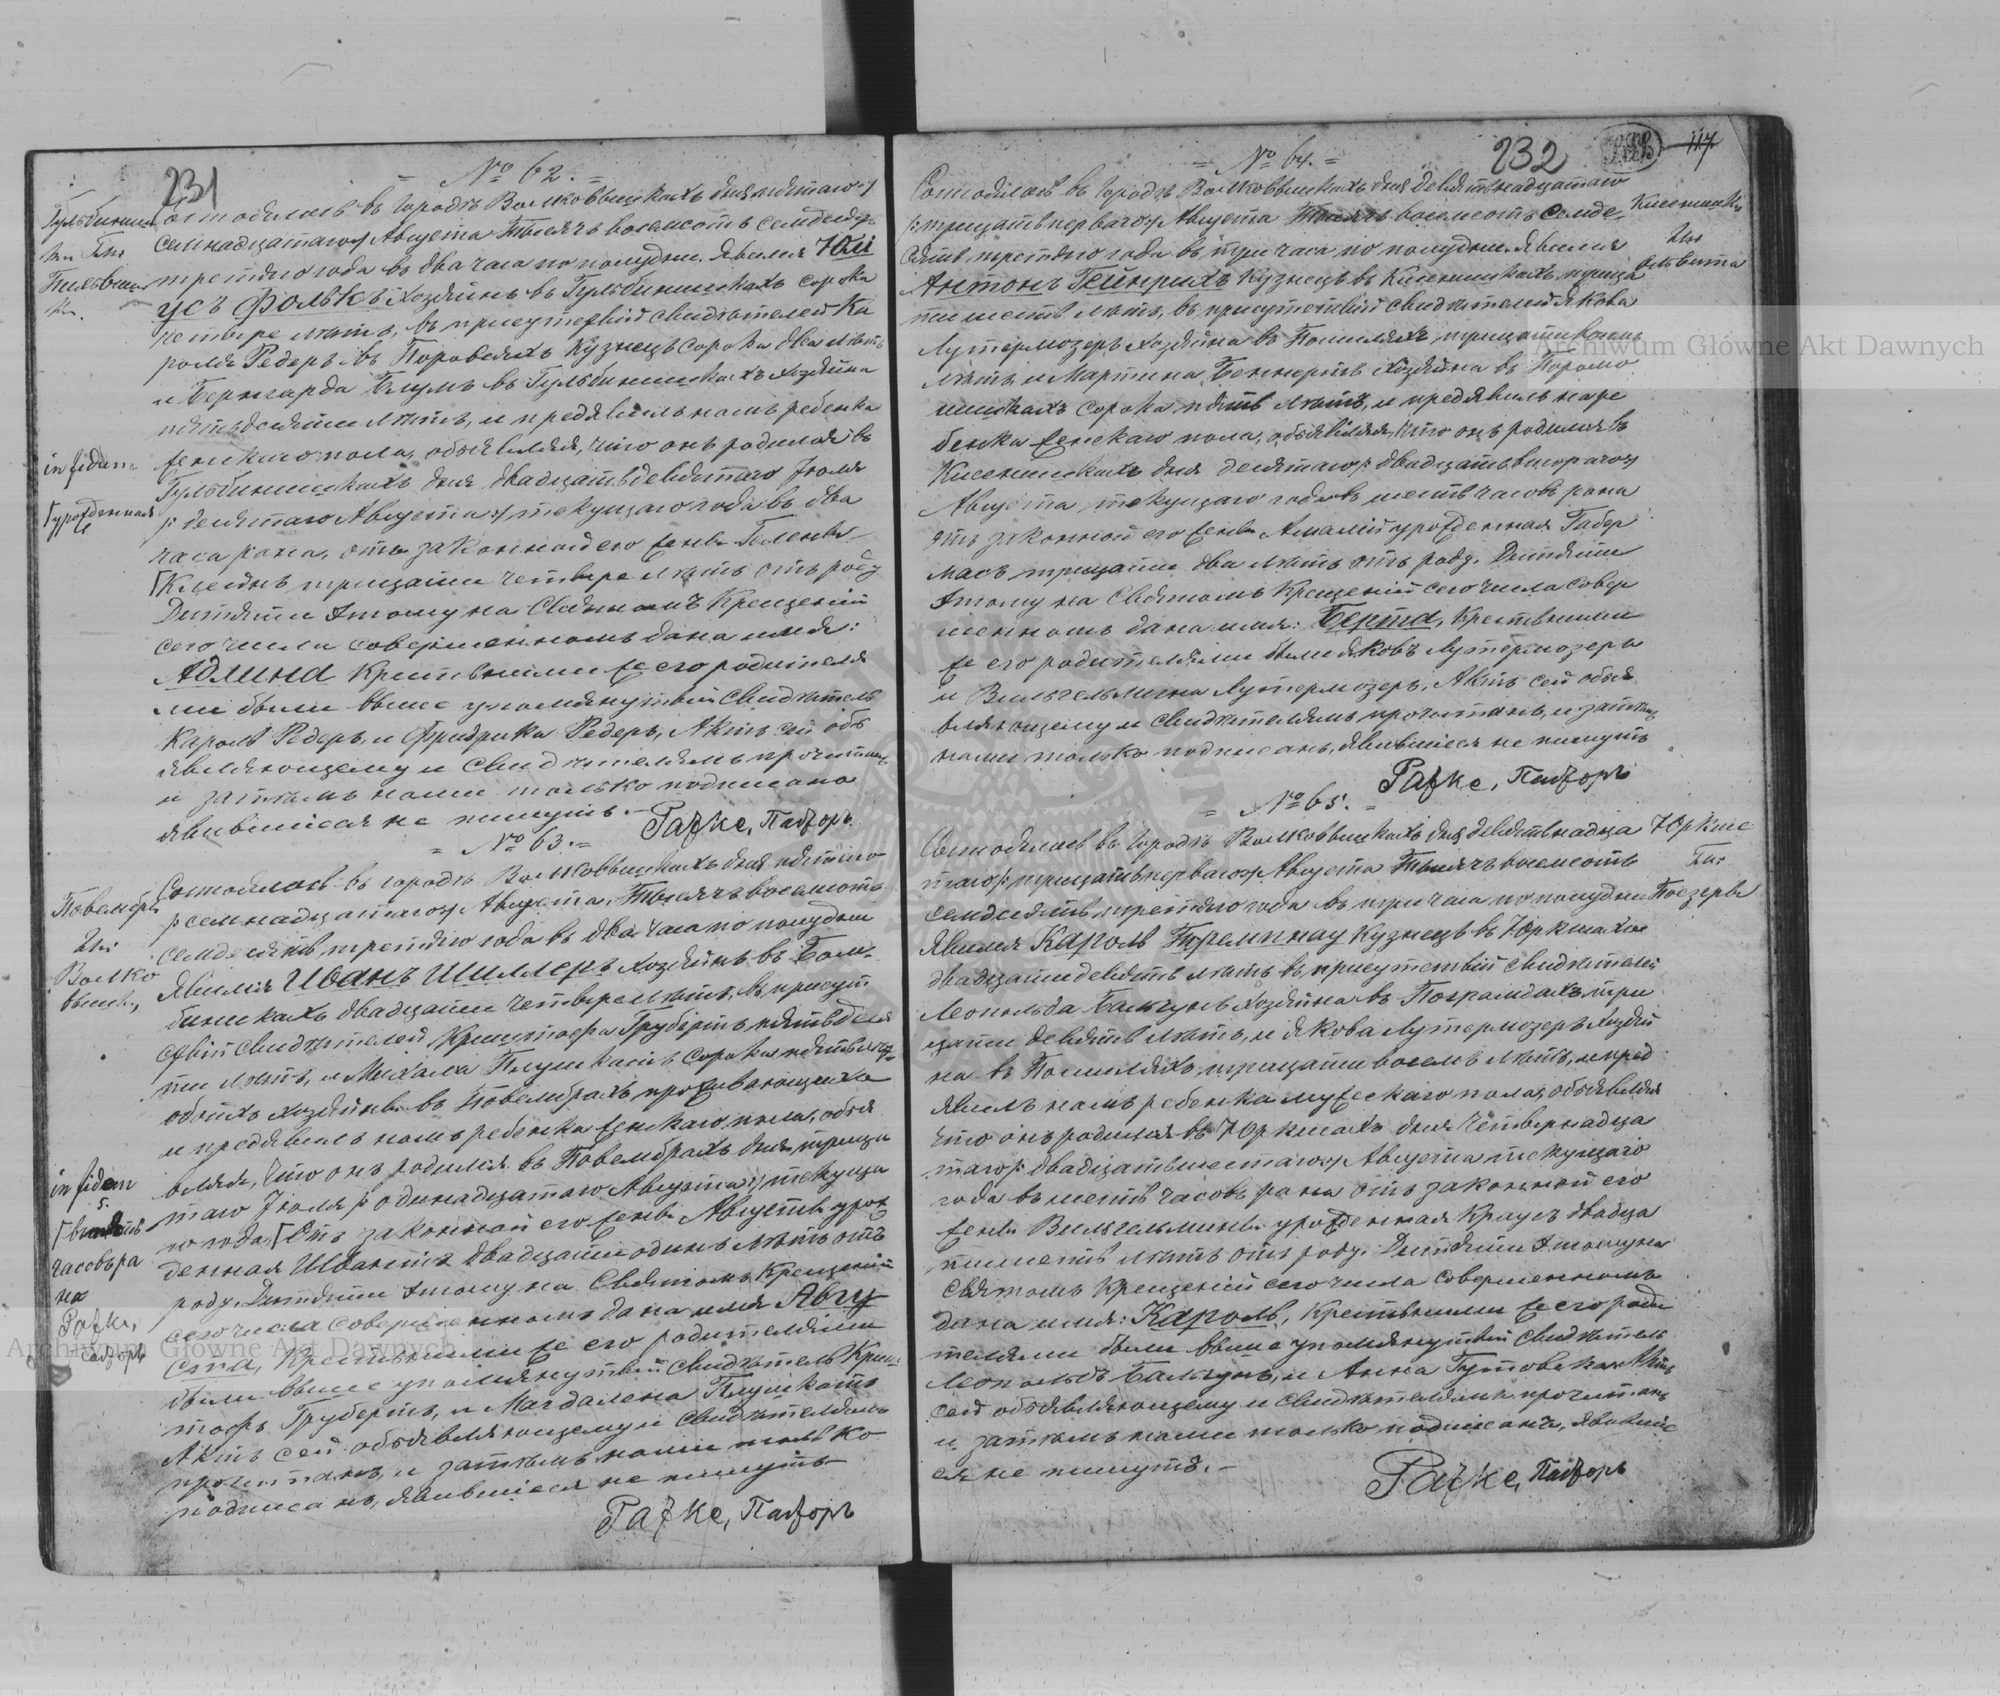 231
= № 62. =
Гульбиниш
ки Гм:
Пильвиш
ки.
Состоялось в городѣ Волковышкахъ дня пятаго /:
семнадцатаго:/ Августа Тысяча восемсотъ семдесятъ
третьяго года въ два часа по полудни. Явился Юли
усъ Фолькъ хозяинъ въ Гульбинишкахъ сорока
четвере лѣтъ, въ присутствіи свидѣтелей Ка
роля Редеръ въ Поровсяхъ Кузнецъ сорока два лѣтъ
и Бернгарда Блумъ въ Гульбинишкахъ хозяина
пятьдесяти лѣтъ, и предявилъ намъ ребенка
женскаго пола, объявляя, что онъ родился въ
in fidem
Гульбинишкахъ дня двадцать девятаго Іюля
/: десятаго Августа:/ текущаго года въ два
Гурожденная
часа рана, отъ законной его жены Елены
Клейнъ тридцати четвере лѣтъ отъ роду
Дитяти этому на Святомъ Крещеніи
сего числа совершенномъ дана имя:
Адлина Крестными же его родителя
ми были выше упомянутый свидѣтель
Кароль Редеръ, и Фридрика Редеръ, Актъ сей объ
являющему и свидѣтелямъ прочитанъ
и затѣмъ нами только подписано
явившіеся не пишутъ. –
Рафке, Пасторъ.
= № 63. =
Повембры
Гм:
Волко
вышки,
Состоялось въ городѣ Волковышкахъ дня пятаго
/: семнадцатаго:/ Августа, Тысяча восемсотъ
семдесятъ третьяго года въ два часа по полудни
Явился Иванъ Шиллеръ хозяинъ въ Бом
бинкахъ двадцати четвере лѣтъ, въ присут
ствіи свидѣтелей Криштофа Грубертъ пятьдеся
ти лѣтъ, и Михала Плушкатъ сорока пять лѣтъ
обоихъ хозяйевъ въ Повембрахъ проживающихъ
и предявилъ намъ ребенка женскаго пола, объя
вляя, что онъ родился въ Повембрахъ дня тридца
in fidem
таго Іюля /: одинадцатаго Августа:/ текуща
го года, Готъ законной его жены Августы урож
Гвъ девять
часовъ ра
на
Рафке,
Пасторъ
денная Швантъ двадцати одинъ лѣтъ отъ
роду. Дитяти этому на Святомъ Крещеніи
сего числа совершенномъ дана имя Авгу
ста, Крестными же его родителями
были выше упомянутый свидѣтель Криш
тофъ Грубертъ, и Магдалена Плушкатъ
Актъ сей объявляющему и свидѣтелямъ
прочитанъ, и затѣмъ нами только
подписанъ, явившіеся не пишутъ
Рафке, Пасторъ
232
117
= № 64. =
Состоялось въ городѣ Волковышкахъ дня девятнадцатаго
/: тридцать перваго:/ Августа Тысяча восемсотъ семде
Кисениш ки
Гм:
Ольвита
сятъ третьяго года въ три часа по полудни. Явился
Антонъ Гейнрихъ Кузнецъ въ Кисенишкахъ тридца
ти шесть лѣтъ, въ присутствіи свидѣтелей Якова
Лутермозеръ хозяина въ Пошиляхъ, тридцати восемь
лѣтъ и Мартина Беннертъ хозяина въ Поромо
нишкахъ сорока пять лѣтъ, и предявилъ на ре
бенка женскаго пола, объявляя, что онъ родился въ
Кисенишкахъ дня десятаго /: двадцать втораго:/
Августа текущаго года въ шесть часовъ рана
отъ законной его жены Амаліи урожденная Габер
масъ тридцати два лѣтъ отъ роду. Дитяти
этому на Святомъ Крещеніи сего числа совер
шенномъ дана имя: Берта, Крестными
же его родителями были Яковъ Лутермозеръ
и Вильгельмина Лутермозеръ, Актъ сей объя
вляющему и свидѣтелямъ прочитанъ, и затѣмъ
нами только подписанъ, явившіеся не пишутъ
Рафке, Пасторъ
= № 65. =
Юркше
Гм:
Поезеры
Состоялось въ городѣ Волковышкахъ дня девятнадца
таго /: тридцать перваго:/ Августа Тысяча восемсотъ
семдесятъ третьяго года въ три часа по полудни
Явился Кароль Тремпнау Кузнецъ въ Юркшахъ
двадцати девять лѣтъ въ присутствіи свидѣтелей
Леопольда Бальчунъ хозяина въ Пограмдахъ три
дцати девять лѣтъ, и Якова Лутермозеръ хозяи
на въ Пошиляхъ, тридцати восемь лѣтъ, и пред
явилъ намъ ребенка мужескаго пола, объявляя
что онъ родился въ Юркшахъ дня Четвернадца
таго /: двадцать шестаго:/ Августа текущаго
года въ шесть часовъ рана отъ законной его
жены Вильгельмины урожденная Краусъ двадца
ти шесть лѣтъ отъ роду. Дитяти этому на
Святомъ Крещеніи сего числа совершенномъ
дана имя: Кароль, Крестными же его роди
телями были выше упомянутый свидѣтель
Леопольдъ Бальчунъ, и Анна Гутовская Актъ
сей объявляющему и свидѣтелямъ прочитанъ
и затѣмъ нами только подписанъ, явившіе
ся не пишутъ. –
Рафке, Пасторъ
Archiwum Główne Akt Dawnych
Archiwum Główne Akt Dawnych